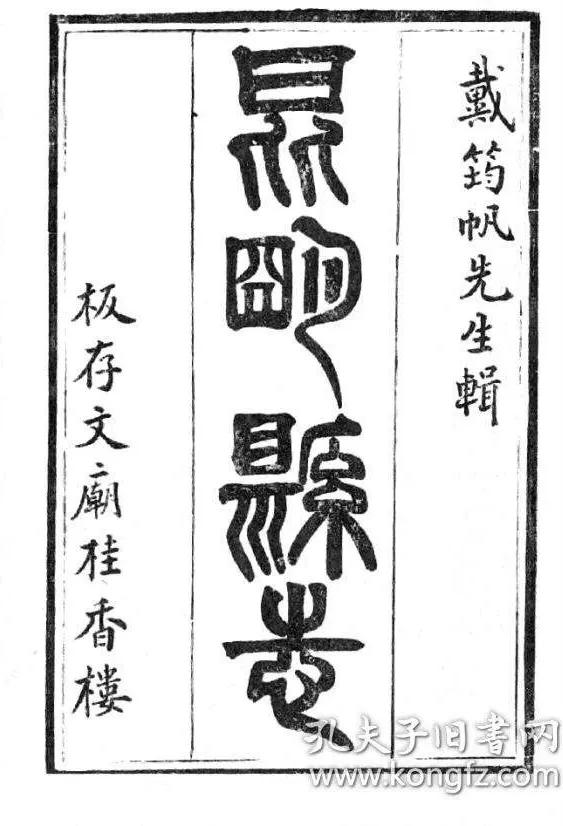 戴筠帆先生輯
昆朙縣志
板存文廟桂香樓
孔夫子旧书网
www.kongfz.com